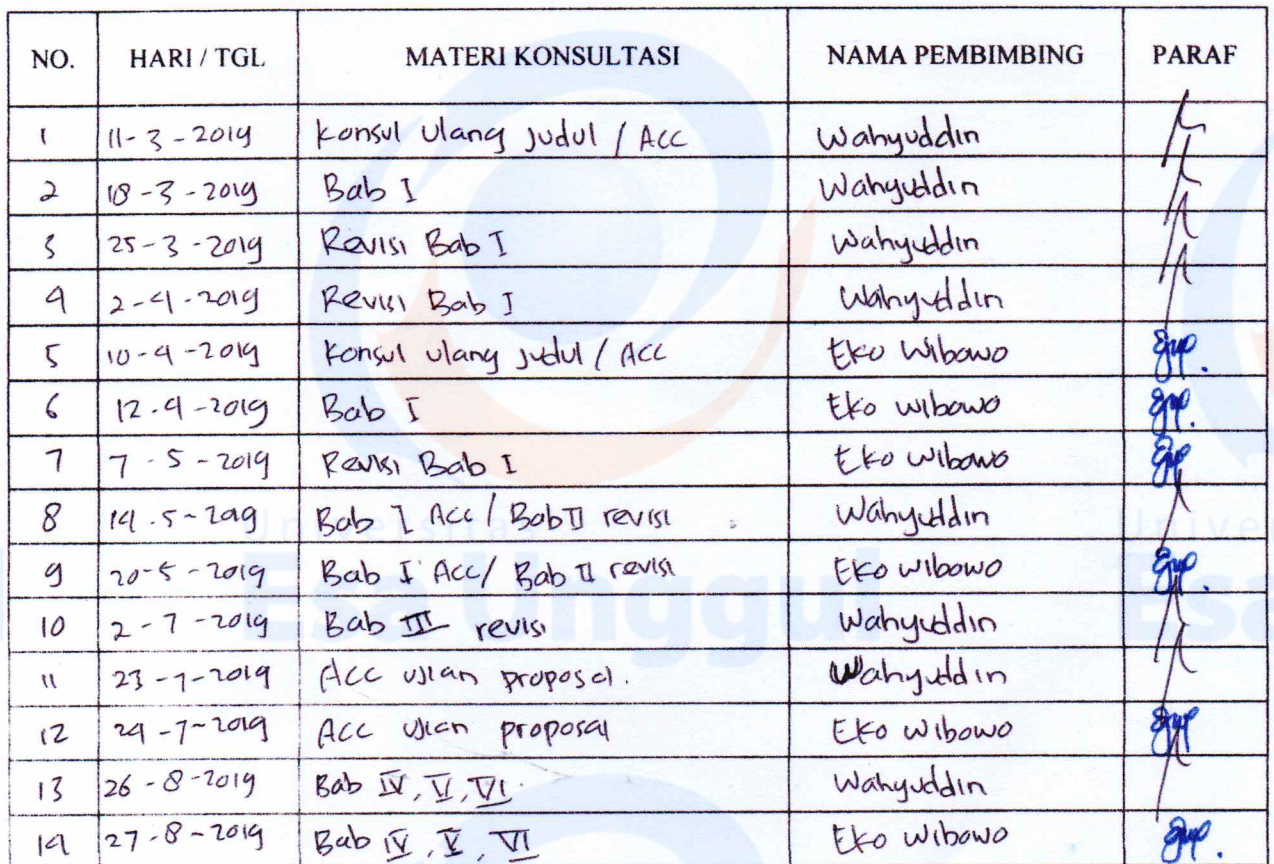 NO. HARI / TGL MATERI KONSULTASI NAMA PEMBIMBING PARAF
1 11-3-2019 Konsul Ulang Judul / Acc Wahyuddin
2 18-3-2019 Bab I Wahyuddin
3 25-3-2019 Revisi Bab I Wahyuddin
4 2-4-2019 Revisi Bab I Wahyuddin
5 10-4-2019 Konsul ulang judul / ACC Eko Wibowo
6 12-4-2019 Bab I Eko Wibowo
7 7-5-2019 Revisi Bab I Eko Wibowo
8 14-5-2019 Bab I Acc / Bab II revisi Wahyuddin
9 20-5-2019 Bab I Acc / Bab II revisi Eko Wibowo
10 2-7-2019 Bab III revisi Wahyuddin
11 23-7-2019 Acc ujian proposal. Wahyuddin
12 24-7-2019 Acc ujian proposal Eko Wibowo
13 26-8-2019 Bab IV, V, VI. Wahyuddin
14 27-8-2019 Bab IV, V, VI Eko Wibowo
Universitas
Esa Unggul
Unive
Esa